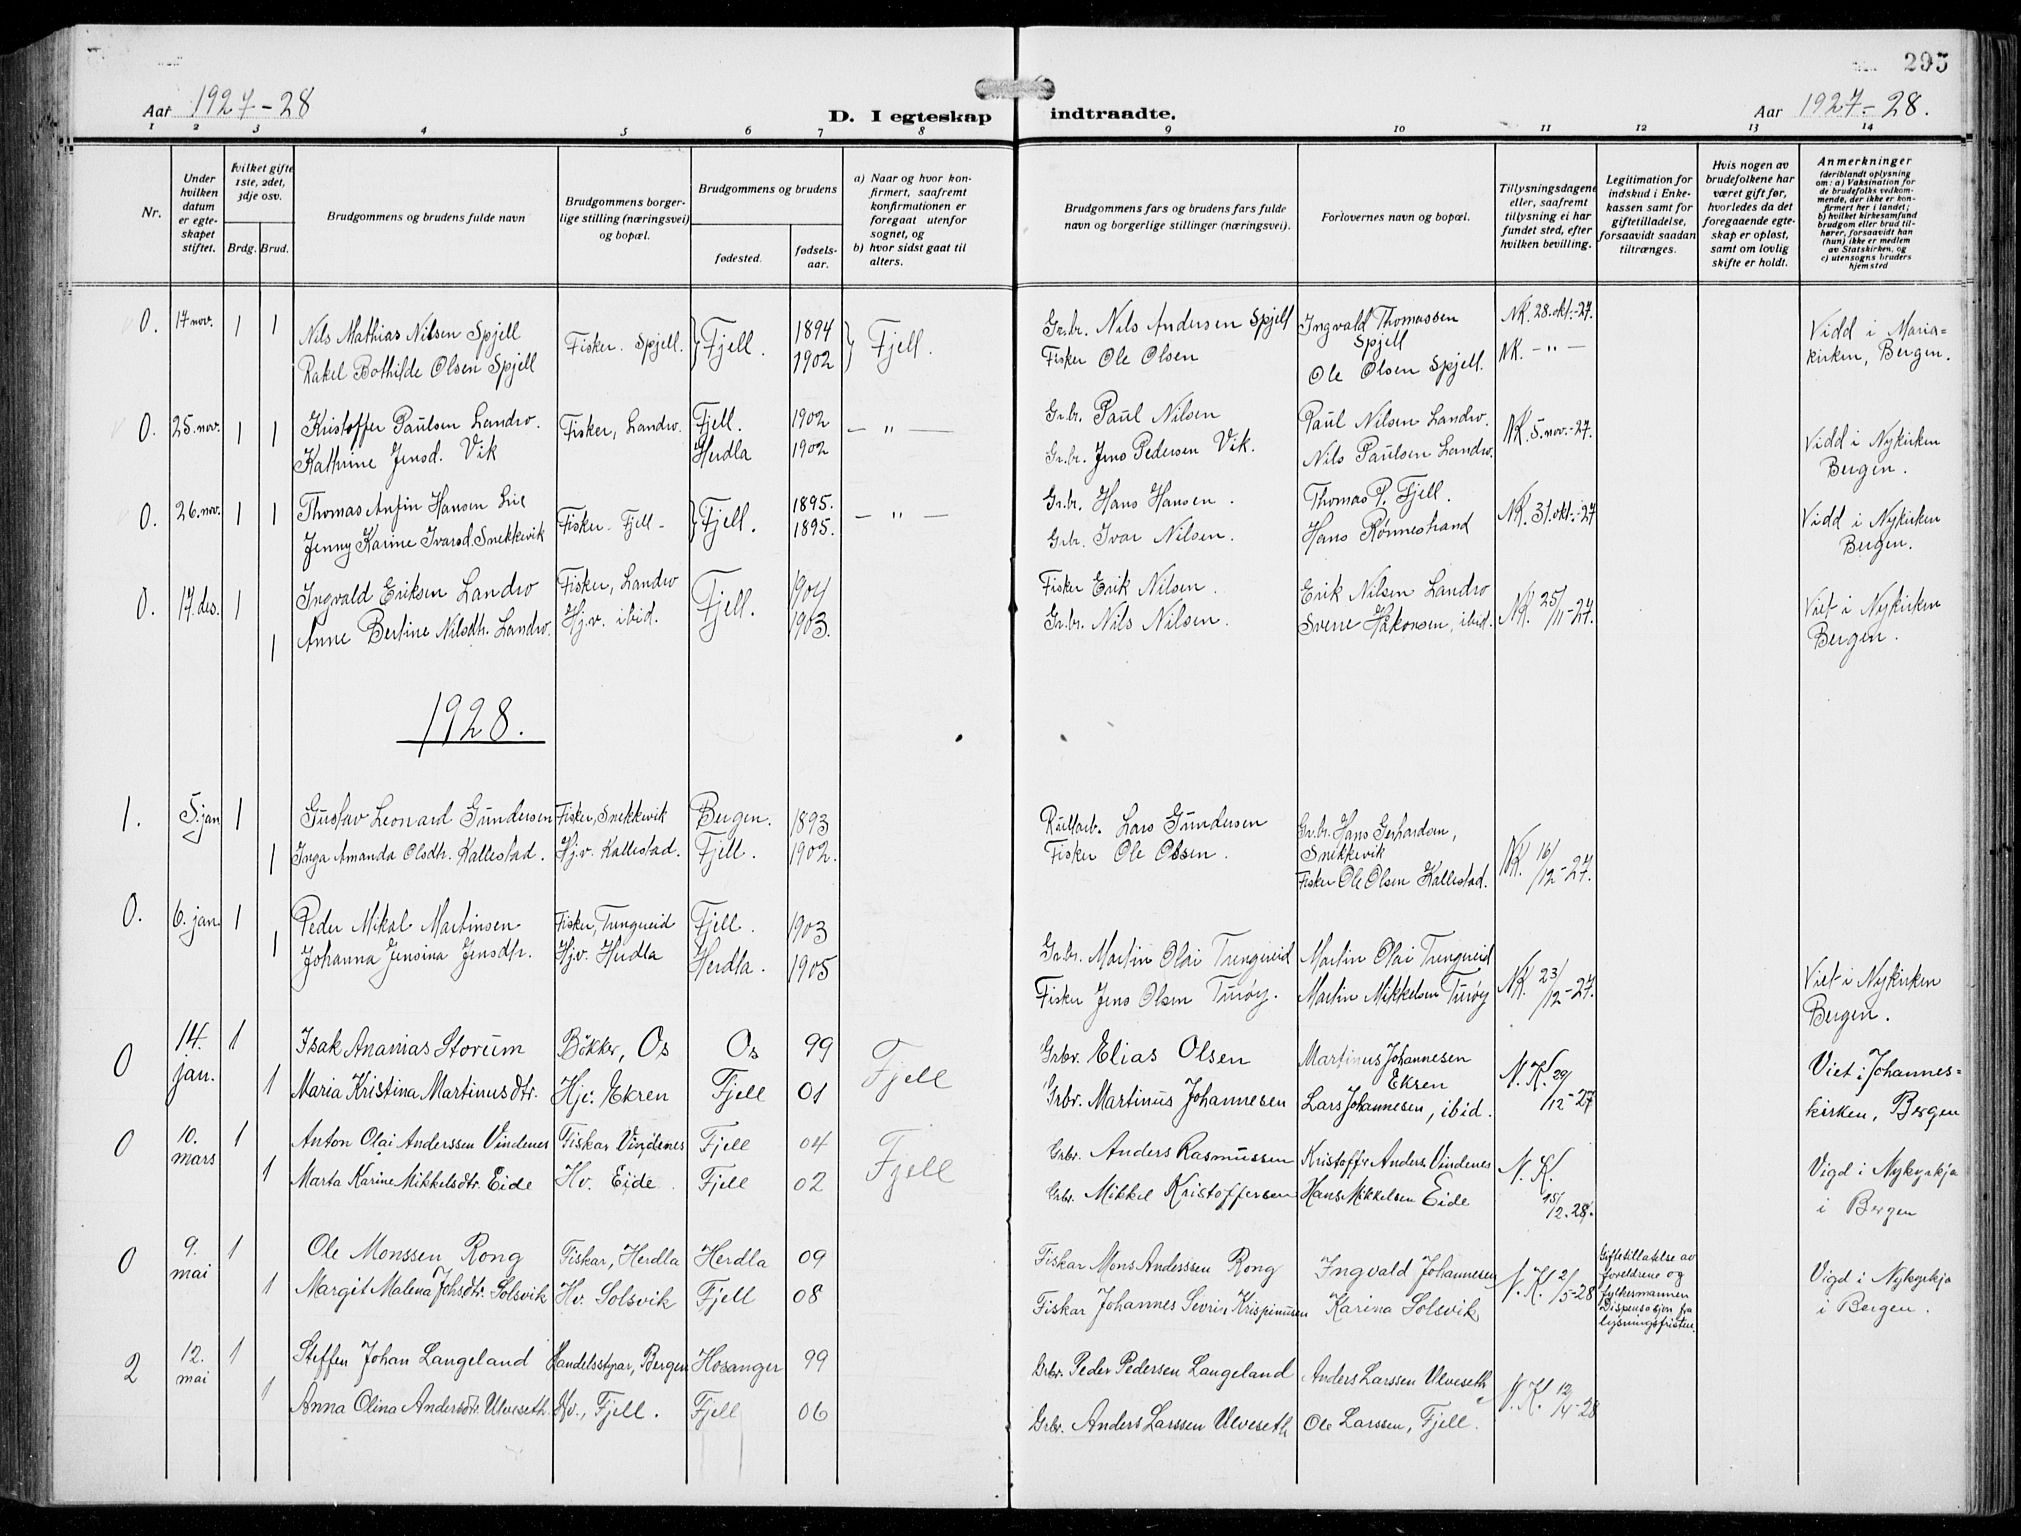 295
Aar 1927-28
D. I egteskap indtraadte.
Aar 1927-28.
1 2 3 4 5 6 7 8 9 10 11 12 13 14
Nr.
Under hvilken datum er egteskapet stiftet.
Hvilket gifte 1ste, 2det, 3dje osv.
Brdg. Brud.
Brudgommens og brudens fulde navn
Brudgommens borgerlige stilling (næringsvei) og bopæl.
Brudgommens og brudens
fødested.
fødselsaar.
a) Naar og hvor konfirmert, saafremt konfirmationen er foregaat utenfor sognet, og
b) hvor sidst gaat til alters.
Brudgommens fars og brudens fars fulde navn og borgerlige stillinger (næringsvei).
Forlovernes navn og bopæl.
Tillysningsdagene eller, saafremt tillysning ei har fundet sted, efter hvilken bevilling.
Legitimation for indskud i Enkekassen samt for giftetilladelse, forsaavidt saadan tiltrænges.
Hvis nogen av brudefolkene har været gift før, hvorledes da det foregaaende egteskap er opløst, samt om lovlig skifte er holdt.
Anmerkninger
(deriblandt oplysning om: a) Vaksination for de brudefolks vedkommende, der ikke er konfirmert her i landet; b) hvilket kirkesamfund brudgom eller brud tilhører, forsaavidt han (hun) ikke er medlem av Statskirken, og c) utensogns bruders hjemsted
0. 17 nov. 1 1 Nils Mathias Nilsen Spjell Fisker. Spjell. Fjell. 1894 Fjell. Gr.br. Nils Andersen Spjell Ingvald Thomassen Spjell NK. 28.okt.-27. Vidd i Maria-
Rakel Bothilde Olsen Spjell 1902 Fisker Ole Olsen Ole Olsen Spjell. NK. - " - kirken, Bergen.
0. 25. nov. 1 1 Kristoffer Paulsen Landro. Fisker, Landro. Fjell. 1902 - " - Gr.br. Paul Nilsen Paul Nilsen Landro. NK. 5. nov.-27. Vidd i Nykirken
Kathrine Jensd. Vik Herdla 1902 Gr.br. Jens Pedersen Vik. Nils Paulsen Landro. Bergen.
0. 26. nov. 1 1 Thomas Anfin Hansen Lie Fisker - Fjell - Fjell. 1895. - " - Gr.br. Hans Hansen. Thomas P. Fjell. NK. 31.okt.-27 Vidd i Nykirken
Jenny Karine Ivarsd. Snekkevik 1895. Gr.br. Ivar Nilsen. Hans Rønnestrand Bergen.
0. 17. des. 1 Ingvald Eriksen Landro Fisker, Landro Fjell. 1904 Fisker Erik Nilsen. Erik Nilsen Landro NK. 25/11-27. Viet i Nykirken
1 Anne Bertine Nilsdtr. Landro. Hj.v. ibid. 1903. Gr.br. Nils Nilsen. Sverre Håkonsen, ibid. Bergen.
1928.
1. 5 jan 1 Gustav Leonard Gundersen Fisker, Snekkevik Bergen. 1893 Lars Gundersen Gr.br. Hans Gerhardsen, Snekkevik NK. 16/12-27.
1 Inga Amanda Olsdtr. Kallestad. Hj.v. Kallestad. Fjell. 1902. Fisker Ole Olsen. Fisker Ole Olsen Kallestad.
0. 6. jan 1 Peder Mikal Martinsen Fisker, Trengereid Fjell. 1903 Gr.br. Martin Olai Trengereid Martin Olai Trengereid NK. 23/12-27. Viet i Nykirken
1 Johanna Jensina Jensdtr. Hj.v. Herdla Herdla. 1905 Fisker Jens Olsen Turøy. Martin Mikkelsen Turøy Bergen.
0 14. jan. 1 Isak Ananias Storum Bökker, Os Os 99 Fjell Grbr. Elias Olsen Martinus Johannesen Ekren N.K. 29/12-27 Viet i Johannes-
1 Maria Kristina Martinusdtr. Hjv. Ekren Fjell 01 Grbr. Martinus Johannesen Lars Johannesen, ibid. kirken, Bergen
0 10. mars 1 Anton Olai Anderssen Vindenes Fiskar Vindenes Fjell 04 Fjell Grbr. Anders Rasmussen Kristoffr Anders. Vindenes N.K. Vigd i Nykyrkja
1 Marta Karine Mikkelsdtr. Eide Hv. Eide. Fjell 02 Grbr. Mikkel Kristoffersen Hans Mikkelsen Eide 15/12.28. i Bergen
0 9. mai 1 Ole Monssen Rong Fiskar, Herdla Herdla 09 Fiskar Mons Anderssen Rong Ingvald Johannesen N.K. 2/5-28 Giftetillatelse av foreldrene og fylkesmannen Dispensasjon fra lysningsfristen. Vigd i Nykyrkja
1 Margit Malena Johsdtr. Solsvik Hv. Solsvik Fjell 08 Fiskar Johannes Sevrin Krispinussen Karina Solsvik i Bergen.
2 12. mai 1 Steffen Johan Langeland Handelsstyrar, Bergen Hosanger 99 Grbr. Peder Pedersen Langeland Anders Larssen Ulveseth N.K. 12/4-28
1 Anna Olina Andersdtr. Ulveseth. Hv., Fjell. Fjell 06 Grbr. Anders Larssen Ulveseth Ole Larssen, Fjell.